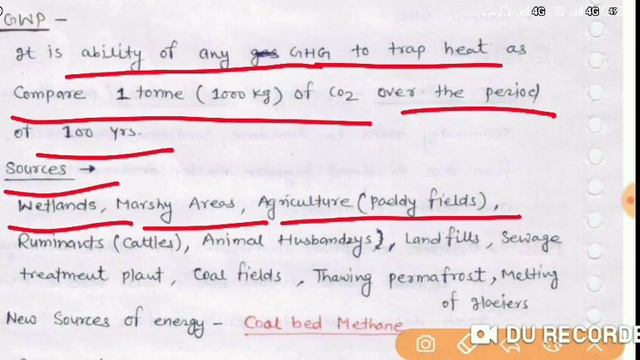 GWP -
It is ability of any GHG to trap heat as
Compare 1 tonne (1000 kg) of CO2 over the period
of 100 yrs.
Sources →
Wetlands, Marshy Areas, Agriculture (paddy fields),
Ruminants (Cattles), Animal Husbandrys), Landfills, Sewage
treatment plant, Coal fields, Thawing permafrost, Melting
of glaciers
New Sources of energy - Coal bed Methane
4G 4G 47
DU RECORDE